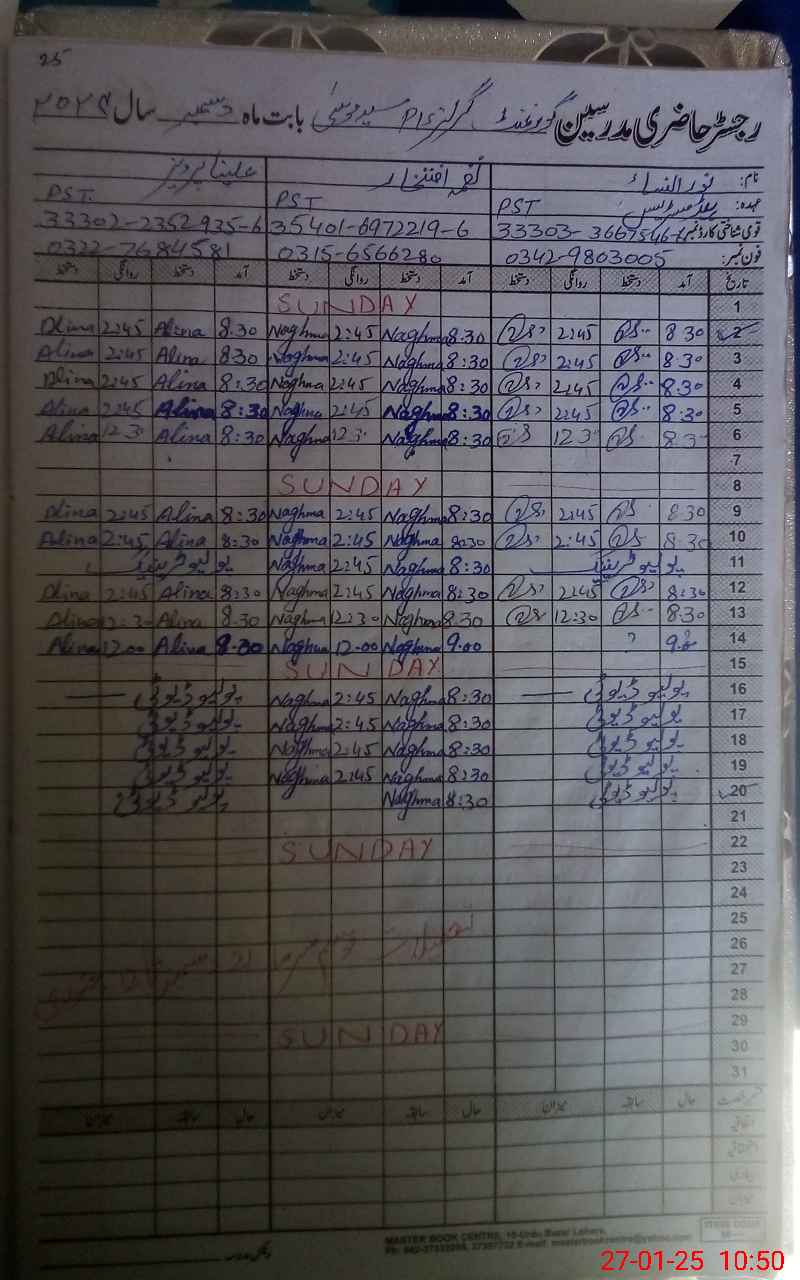 25
رجسٹر حاضری مدرسین گورنمنٹ گرلز P/S سید موسیٰ بابت ماہ دسمبر سال ۲۰۲۴
نام: نور النساء نغمہ افتخار علینا پرویز
عہدہ: ہیڈمسٹریس PST PST PST.
قومی شناختی کارڈ نمبر: 33303-3667546- 35401-6972219-6 33302-2352935-6
فون نمبر: 0342-9803005 0315-6566280 0322-7684581
تاریخ آمد دستخط روانگی دستخط آمد دستخط روانگی دستخط آمد دستخط روانگی دستخط
1 SUNDAY
2 8.30 2:45 8:30 Naghma 2:45 Naghma 8.30 Alina 2:45 Alina
3 8:30 2:45 8:30 Naghma 2:45 Naghma 8:30 Alina 2:45 Alina
4 8:30 2:45 8:30 Naghma 2:45 Naghma 8:30 Alina 2:45 Alina
5 8:30 2:45 8:30 Naghma 2:45 Naghma 8:30 Alina 2:45 Alina
6 8:30 12:30 8:30 Naghma 12:30 Naghma 8:30 Alina 12:30 Alina
7
8 SUNDAY
9 8:30 2:45 8:30 Naghma 2:45 Naghma 8:30 Alina 2:45 Alina
10 8:30 2:45 8:30 Naghma 2:45 Naghma 8:30 Alina 2:45 Alina
11 پولیو ٹریننگ 8:30 Naghma 2:45 Naghma پولیو ٹریننگ
12 8:30 2:45 8:30 Naghma 2:45 Naghma 8:30 Alina 2:45 Alina
13 8:30 12:30 8.30 Naghma 12:30 Naghma 8.30 Alina 12:30 Alina
14 9.00 Naghma 12.00 Naghma 8.30 Alina 12.00 Alina
15 SUNDAY
16 پولیو ڈیوٹی 8:30 Naghma 2:45 Naghma پولیو ڈیوٹی
17 پولیو ڈیوٹی 8:30 Naghma 2:45 Naghma پولیو ڈیوٹی
18 پولیو ڈیوٹی 8:30 Naghma 2:45 Naghma پولیو ڈیوٹی
19 پولیو ڈیوٹی 8:30 Naghma 2:45 Naghma پولیو ڈیوٹی
20 پولیو ڈیوٹی 8:30 Naghma پولیو ڈیوٹی
21
22 SUNDAY
23
24
25
26 تعطیلات موسم سرما
27
28
29 SUNDAY
30
31
حال سابقہ میزان حال سابقہ میزان حال سابقہ میزان
اتفاقیہ
میزان
MASTER BOOK CENTRE, 10-Urdu Bazar Lahore.
27-01-25 10:50